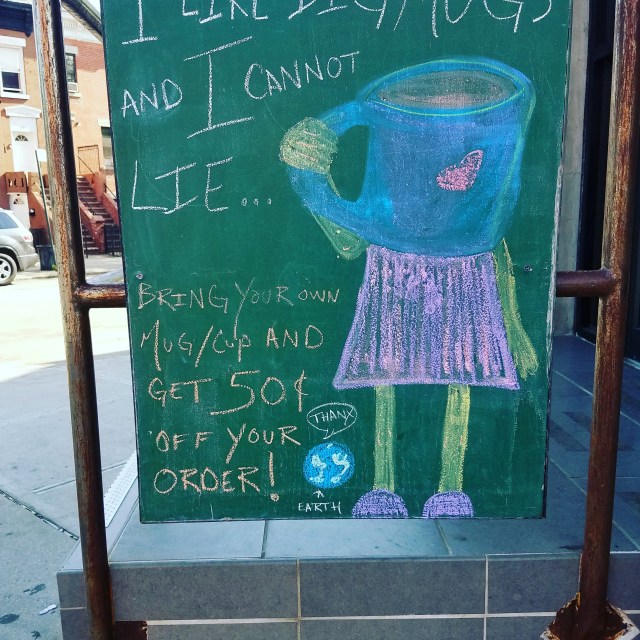 I LIKE BIG MUGS
AND I CANNOT
LIE...
BRING YOUR OWN
MUG/CUP AND
GET 50¢
OFF YOUR
ORDER!
THANX
EARTH